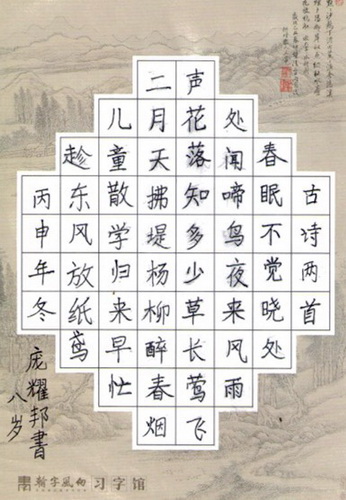 古诗两首
春眠不觉晓处
处闻啼鸟夜来风雨
声花落知多少草长莺飞
二月天拂堤杨柳醉春烟
儿童散学归来早忙
趁东风放纸鸢
丙申年冬
庞耀邦書
八岁
习字馆